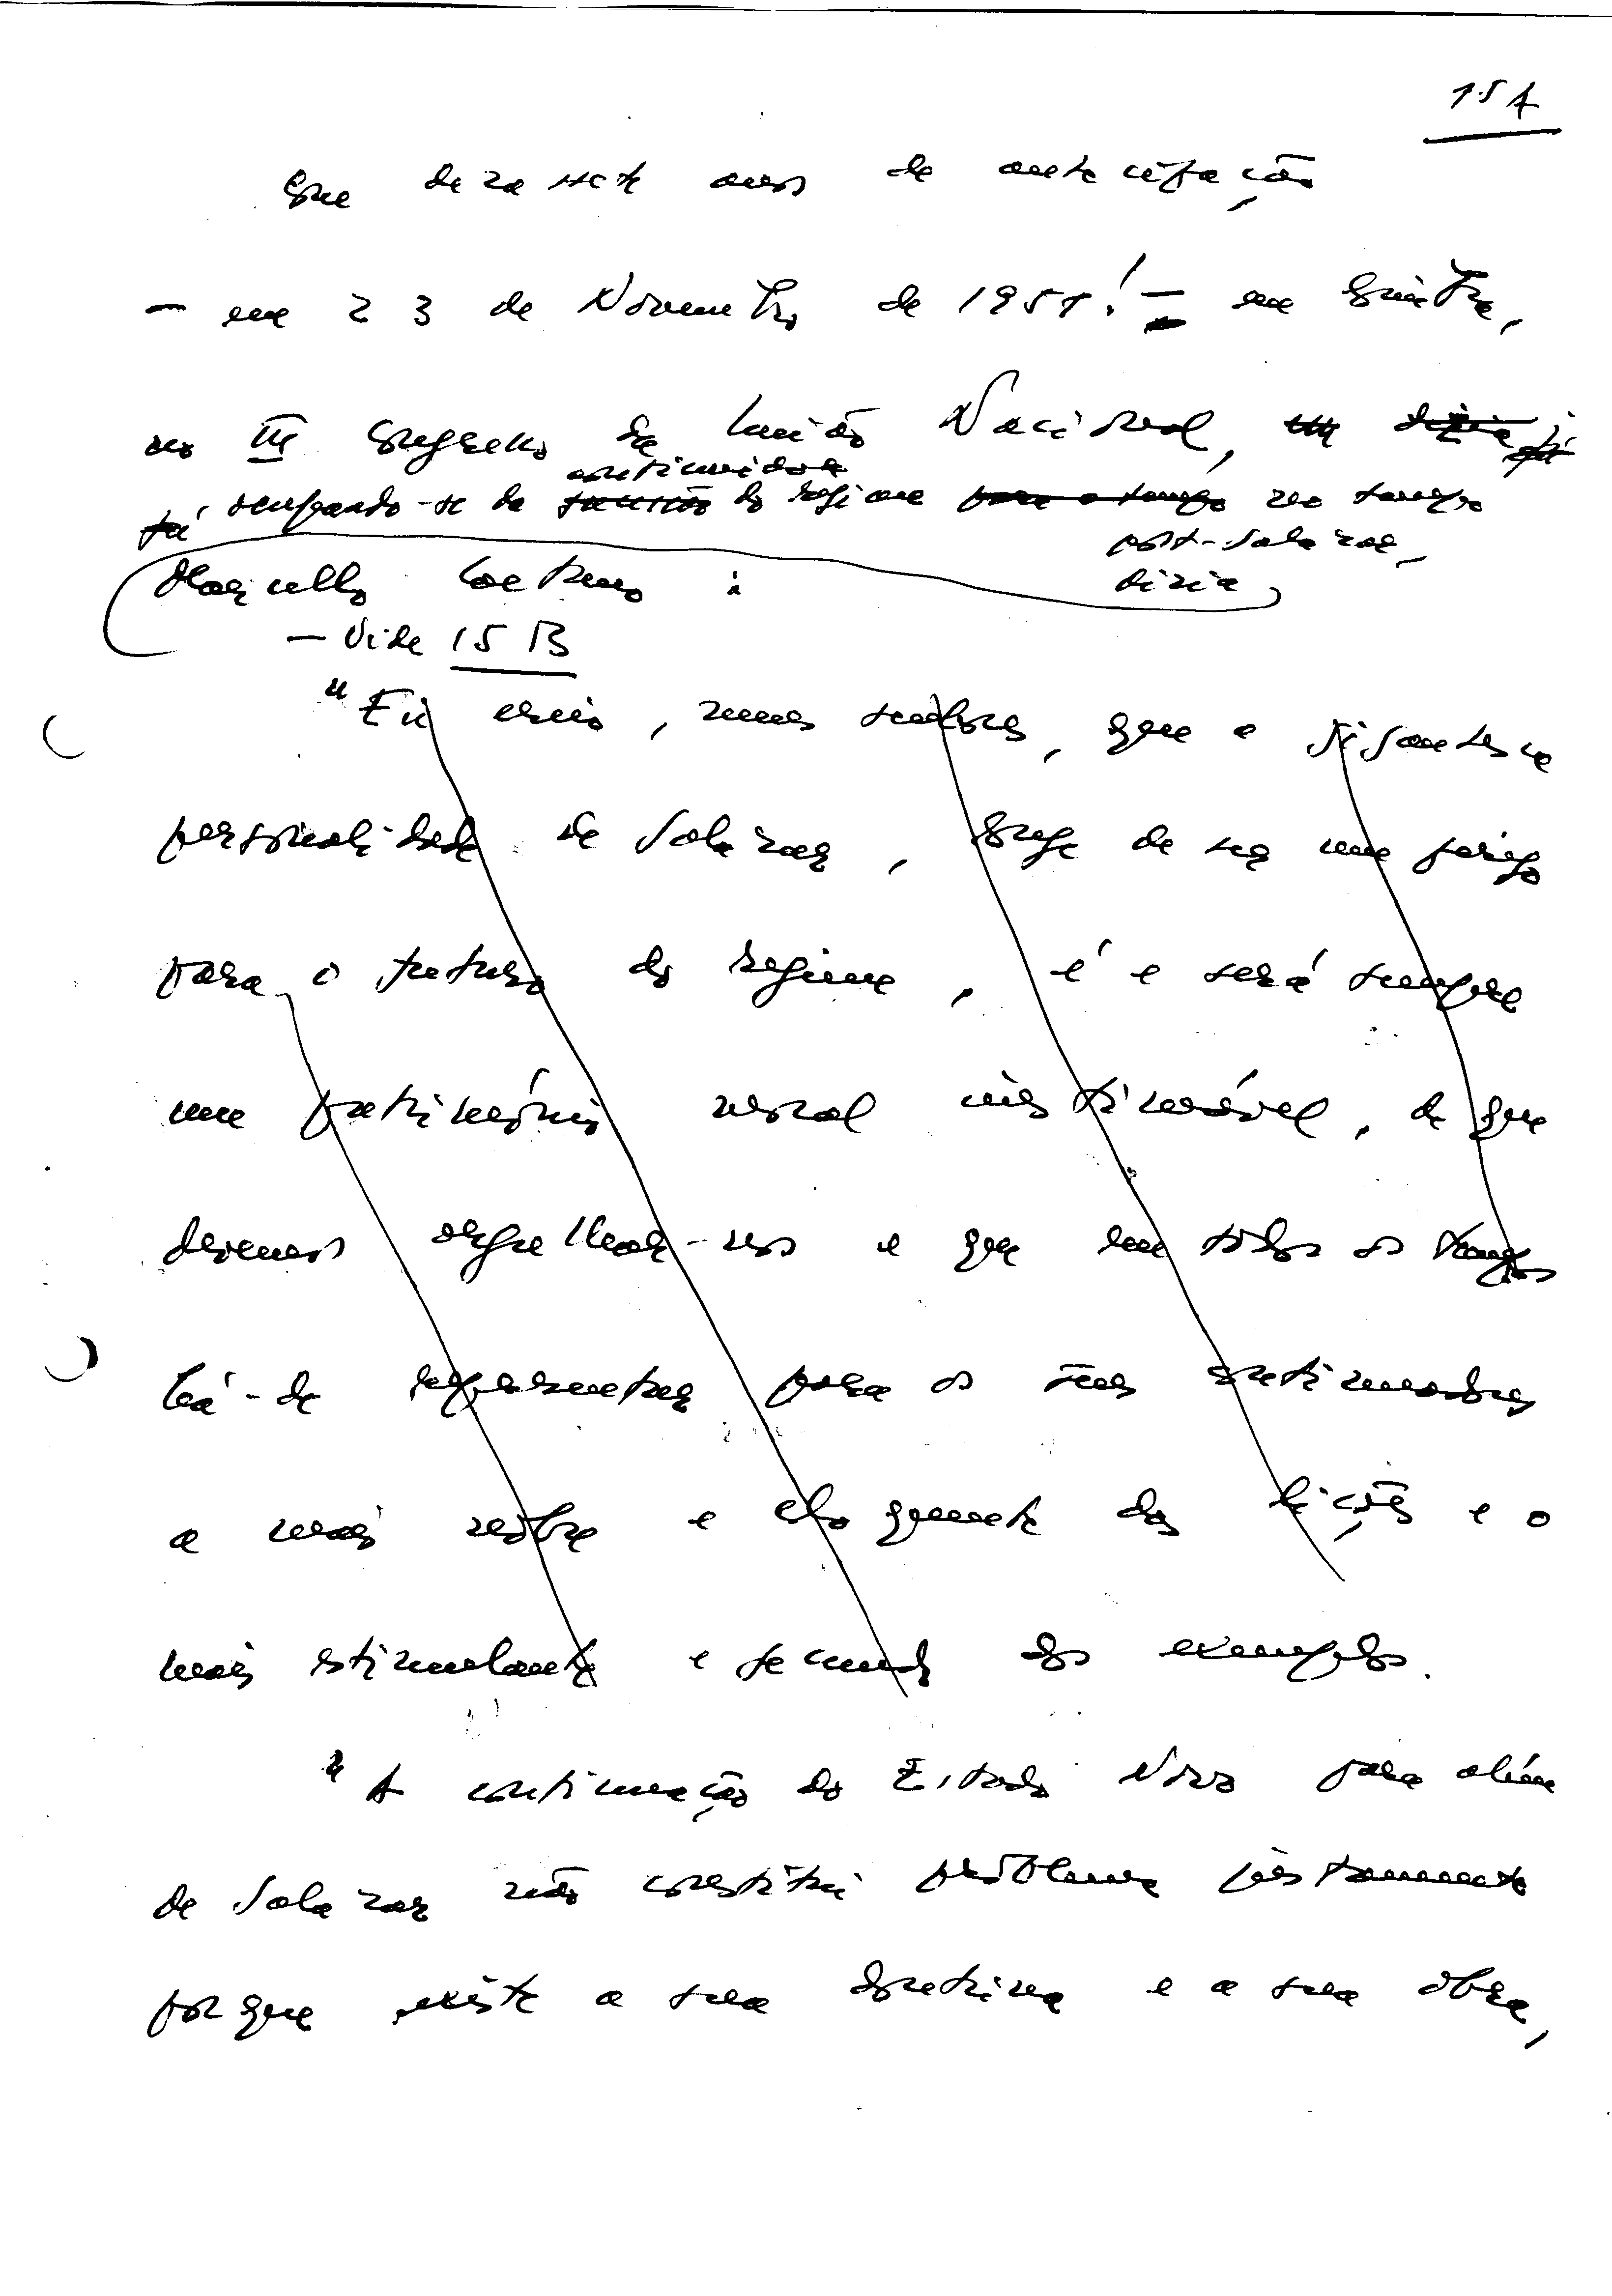 15 A
Com dezassete anos de antecipação
— em 23 de Novembro de 1951! — em Coimbra,
no III Congresso da União Nacional, dizia já
continuidade
já ocupando-se da sucessão do regime para o tempo no tempo
post-Salazar,
Marcello Caetano : dizia
— Vide 15 B
"Eu creio, meus senhores, que a gigantesca
personalidade de Salazar, longe de ser um perigo
para o futuro do regime, é e será sempre
um património moral inestimável, de que
devemos orgulhar-nos e que em todos os tempos
há-de representar para os seus continuadores
a mais nobre e eloquente das lições e o
mais estimulante e fecundo dos exemplos.
"A continuação do Estado Novo para além
de Salazar não constitui problema justamente
porque existe a sua doutrina e a sua obra,